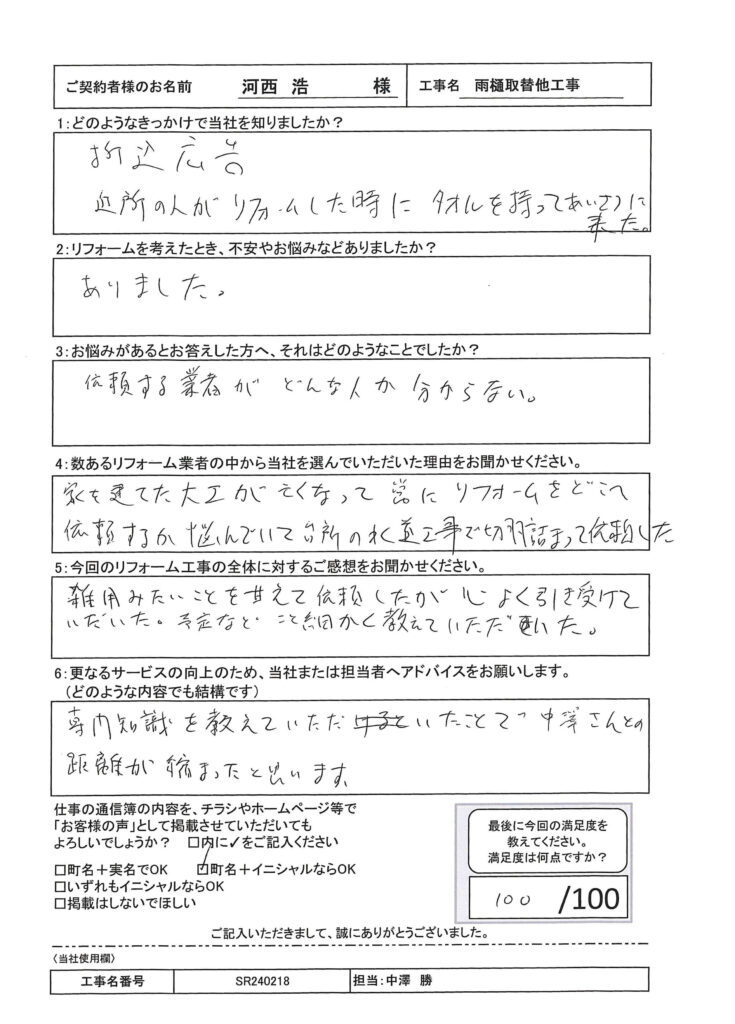 ご契約者様のお名前 河西 浩 様 工事名 雨樋取替他工事
1:どのようなきっかけで当社を知りましたか?
折込広告
近所の人がリフォームした時に タオルを持ってあいさつに
来た。
2:リフォームを考えたとき、不安やお悩みなどありましたか?
ありました。
3:お悩みがあるとお答えした方へ、それはどのようなことでしたか?
依頼する業者が どんな人か 分からない。
4:数あるリフォーム業者の中から当社を選んでいただいた理由をお聞かせください。
家を建てた大工が亡くなって 常に リフォームをどこへ
依頼するか 悩んでいて 台所の水道工事で切羽詰まって依頼した
5:今回のリフォーム工事の全体に対するご感想をお聞かせください。
雑用みたいことを甘えて依頼したが 心よく引き受けて
いだいた。予定など こと細かく教えていただいた。
6:更なるサービスの向上のため、当社または担当者へアドバイスをお願いします。
(どのような内容でも結構です)
専門知識を教えていただいたことで 中澤さんとの
距離が縮まったと思います
仕事の通信簿の内容を、チラシやホームページ等で
「お客様の声」として掲載させていただいても
よろしいでしょうか? □内に✓をご記入ください
□町名+実名でOK ☑町名+イニシャルならOK
□いずれもイニシャルならOK
□掲載はしないでほしい
最後に今回の満足度を
教えてください。
満足度は何点ですか?
100 /100
ご記入いただきまして、誠にありがとうございました。
〈当社使用欄〉
工事名番号 SR240218 担当:中澤 勝